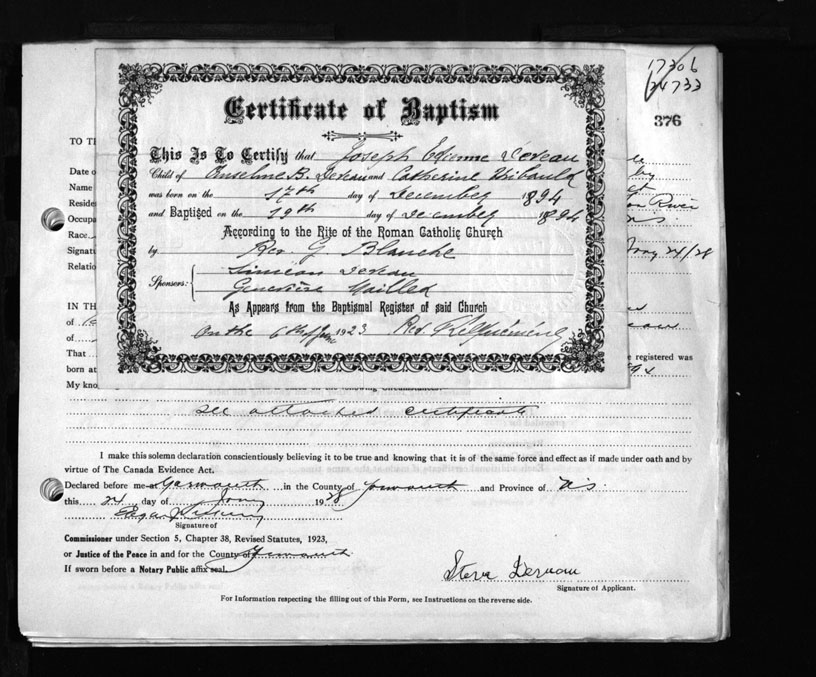 17306
24733
376
Certificate of Baptism
This Is To Certify that Joseph Etienne Deveau
Child of Anselme B. Deveau and Catherine Thibauld
was born on the 17th day of December 1894
and Baptised on the 19th day of December 1894
According to the Rite of the Roman Catholic Church
by Rev G Blanche
Sponsers: Simeon Deveau
Genevieve Mailled
As Appears from the Baptismal Register of said Church
On the 6th 1923 Rev
TO TH
Date o
Name
Reside on River
Occupa
Race
Signatu 24/28
Relatio
IN TH
of
of
That e registered was
born at
My kno
See attached certificate
I make this solemn declaration conscientiously believing it to be true and knowing that it is of the same force and effect as if made under oath and by
virtue of The Canada Evidence Act.
Declared before me at Yarmouth in the County of Yarmouth and Province of N.S.
this 24 day of 1928
Signature of
Commissioner under Section 5, Chapter 38, Revised Statutes, 1923,
or Justice of the Peace in and for the County of Yarmouth
If sworn before a Notary Public affix seal.
Steve Deveau
Signature of Applicant.
For Information respecting the filling out of this Form, see Instructions on the reverse side.